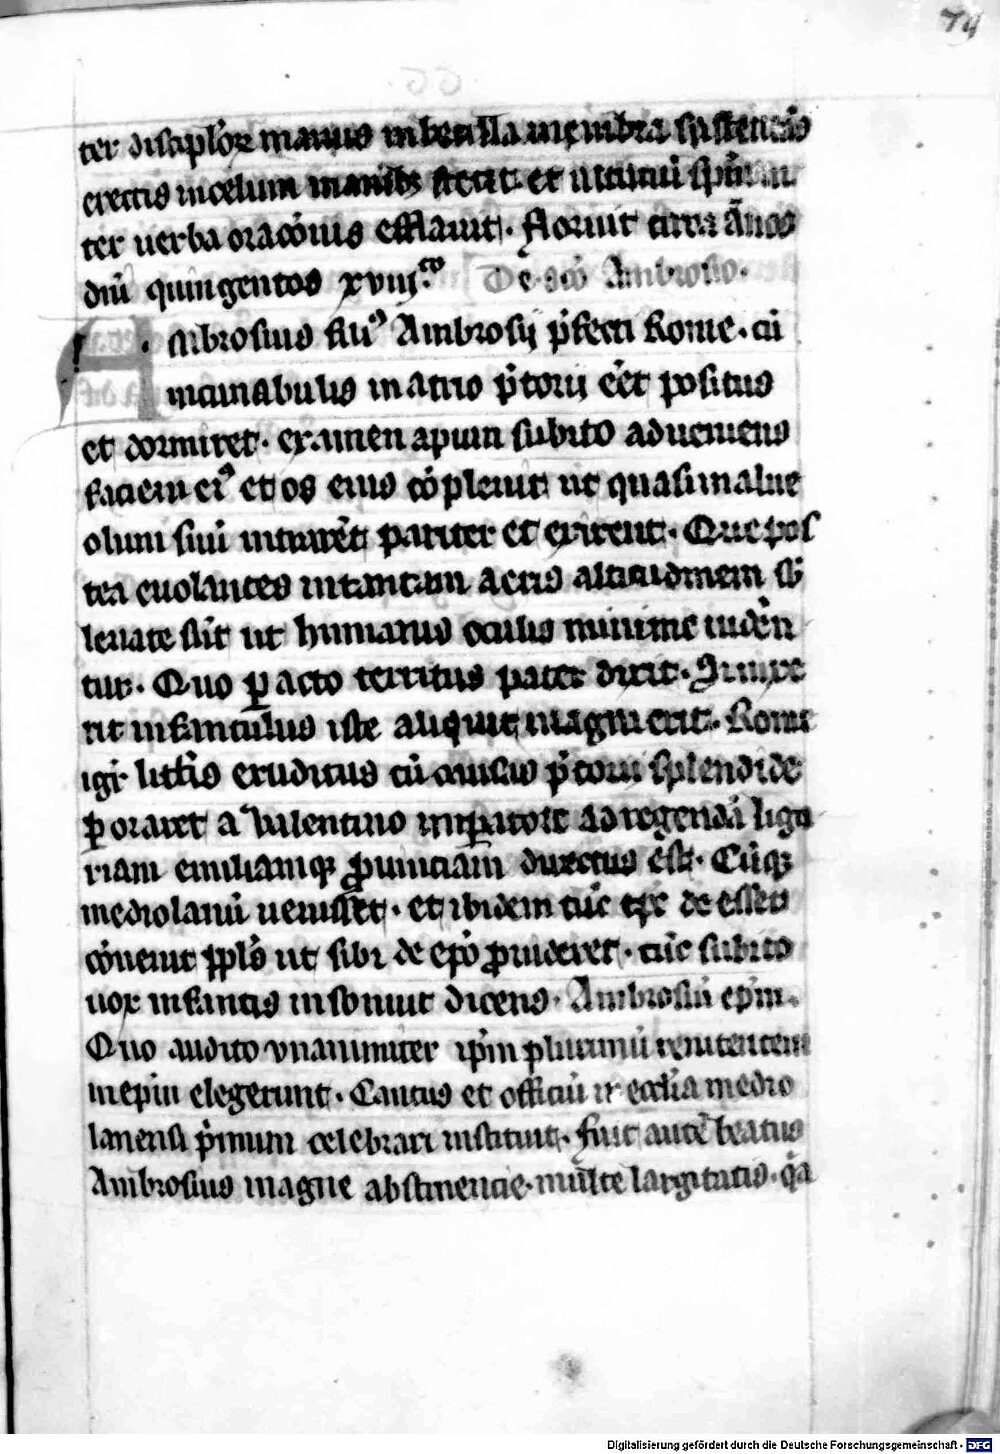 74
ter discipl'oꝝ manus inbecilla membra sustentans
erectis in celum manibꝫ stetit et ultimū sp̄m in
ter uerba oracōnis efflauit. floruit circa ānos
dn̄i quingentos xviijᶜᵒ. De sc̄o Ambrosio.
Ambrosius filiꝰ Ambrosij p̄fecti Rome. cū
incunabulis in atrio p̄torij eēt positus
et dormiret. examen apum subito adueniens
faciem eiꝰ et os eius cōpleuit ut quasi in alue
olum suū intrarēt pariter et exirent. Que pos
tea euolantes in tantam aeris altitudinem sb
leuate sūt ut humanis oculis minime uiderēn
tur. Quo ꝑacto territus pater dixit. Si uixe
rit infantulus iste aliquit magni erit. Rome
igr̄ litt̄is eruditus cū causas p̄torij splendide
ꝑoraret a Valentino impatore ad regendā ligu
riam emiliamqꝫ ꝓuinciam directus est. Cūqꝫ
mediolanū uenisset. et ibidem tūc epc̄ deesset
cōuenit ppl's ut sibi de epō ꝓuideret. tūc subito
uox infantis insonuit dicens. Ambrosiū ep̄m.
Quo audito vnanimiter ip̄m plurimū renitentem
in ep̄m elegerunt. Cantus et officiū ī eccl'ia medio
lanensi p̄mum celebrari instituit. fuit autē beatus
Ambrosius magne abstinencie. multe largitatis. q̄a
Digitalisierung gefördert durch die Deutsche Forschungsgemeinschaft - DFG